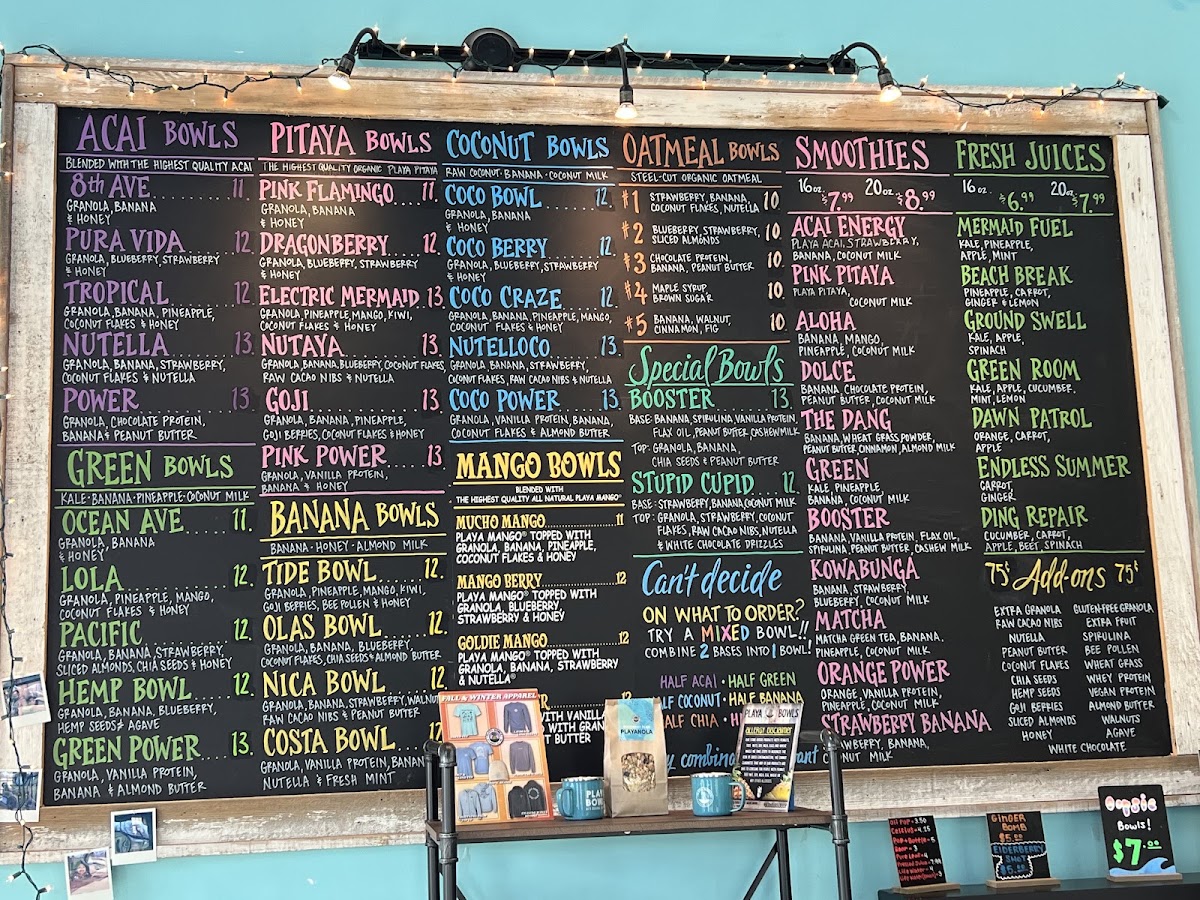 ACAI BOWLS
BLENDED WITH THE HIGHEST QUALITY ACAI
8th AVE 11.
GRANOLA, BANANA
& HONEY
PURA VIDA 12.
GRANOLA, BLUEBERRY, STRAWBERRY
& HONEY
TROPICAL 12.
GRANOLA, BANANA, PINEAPPLE,
COCONUT FLAKES & HONEY
NUTELLA 13.
GRANOLA, BANANA, STRAWBERRY,
COCONUT FLAKES & NUTELLA
POWER 13.
GRANOLA, CHOCOLATE PROTEIN,
BANANA & PEANUT BUTTER
GREEN BOWLS
KALE · BANANA · PINEAPPLE · COCONUT MILK
OCEAN AVE 11.
GRANOLA, BANANA
& HONEY
LOLA 12.
GRANOLA, PINEAPPLE, MANGO,
COCONUT FLAKES & HONEY
PACIFIC 12.
GRANOLA, BANANA, STRAWBERRY,
SLICED ALMONDS, CHIA SEEDS & HONEY
HEMP BOWL 12.
GRANOLA, BANANA, BLUEBERRY,
HEMP SEEDS & AGAVE
GREEN POWER 13.
GRANOLA, VANILLA PROTEIN,
BANANA & ALMOND BUTTER
PITAYA BOWLS
THE HIGHEST QUALITY ORGANIC PLAYA PITAYA
PINK FLAMINGO 11.
GRANOLA, BANANA
& HONEY
DRAGONBERRY 12.
GRANOLA, BLUEBERRY, STRAWBERRY
& HONEY
ELECTRIC MERMAID 13.
GRANOLA, PINEAPPLE, MANGO, KIWI,
COCONUT FLAKES & HONEY
NUTAYA 13.
GRANOLA, BANANA, BLUEBERRY, COCONUT FLAKES,
RAW CACAO NIBS & NUTELLA
GOJI 13.
GRANOLA, BANANA, PINEAPPLE,
GOJI BERRIES, COCONUT FLAKES & HONEY
PINK POWER 13.
GRANOLA, VANILLA PROTEIN,
BANANA & HONEY
BANANA BOWLS
BANANA · HONEY · ALMOND MILK
TIDE BOWL 12.
GRANOLA, PINEAPPLE, MANGO, KIWI,
GOJI BERRIES, BEE POLLEN & HONEY
OLAS BOWL 12.
GRANOLA, BANANA, BLUEBERRY,
COCONUT FLAKES, CHIA SEEDS & ALMOND BUTTER
NICA BOWL 12.
GRANOLA, BANANA, STRAWBERRY, WALNUT
RAW CACAO NIBS & PEANUT BUTTER
COSTA BOWL 12
GRANOLA, VANILLA PROTEIN, BANAN
NUTELLA & FRESH MINT
COCONUT BOWLS
RAW COCONUT · BANANA · COCONUT MILK
COCO BOWL 12.
GRANOLA, BANANA
& HONEY
COCO BERRY 12.
GRANOLA, BLUEBERRY, STRAWBERRY
& HONEY
COCO CRAZE 12.
GRANOLA, BANANA, PINEAPPLE, MANGO,
COCONUT FLAKES & HONEY
NUTELLOCO 13.
GRANOLA, BANANA, STRAWBERRY,
COCONUT FLAKES, RAW CACAO NIBS & NUTELLA
COCO POWER 13
GRANOLA, VANILLA PROTEIN, BANANA,
COCONUT FLAKES & ALMOND BUTTER
MANGO BOWLS
BLENDED WITH
THE HIGHEST QUALITY ALL NATURAL PLAYA MANGO®
MUCHO MANGO 11
PLAYA MANGO® TOPPED WITH
GRANOLA, BANANA, PINEAPPLE,
COCONUT FLAKES & HONEY
MANGO BERRY 12
PLAYA MANGO® TOPPED WITH
GRANOLA, BLUEBERRY,
STRAWBERRY & HONEY
GOLDIE MANGO 12
PLAYA MANGO® TOPPED WITH
GRANOLA, BANANA, STRAWBERRY
& NUTELLA®
12
WITH VANILLA
WITH GRAN
T BUTTER
OATMEAL BOWLS
STEEL-CUT ORGANIC OATMEAL
#1 STRAWBERRY, BANANA, 10
COCONUT FLAKES, NUTELLA
#2 BLUEBERRY, STRAWBERRY, 10.
SLICED ALMONDS
#3 CHOCOLATE PROTEIN, 10.
BANANA, PEANUT BUTTER
#4 MAPLE SYRUP 10.
BROWN SUGAR
#5 BANANA, WALNUT, 10.
CINNAMON, FIG
Special Bowls
BOOSTER 13.
BASE: BANANA, SPIRULINA, VANILLA PROTEIN,
FLAX OIL, PEANUT BUTTER, CASHEW MILK
TOP: GRANOLA, BANANA,
CHIA SEEDS & PEANUT BUTTER
STUPID CUPID 12
BASE: STRAWBERRY, BANANA, COCONUT MILK
TOP: GRANOLA, STRAWBERRY, COCONUT
FLAKES, RAW CACAO NIBS, NUTELLA
& WHITE CHOCOLATE DRIZZLES
Can't decide
ON WHAT TO ORDER?
TRY A MIXED BOWL!!
COMBINE 2 BASES INTO 1 BOWL!
HALF ACAI · HALF GREEN
HALF COCONUT · HALF BANANA
HALF CHIA · H
y combin ant
SMOOTHIES
16 oz. $7.99 20 oz. $8.99
ACAI ENERGY
PLAYA ACAI, STRAWBERRY,
BANANA, COCONUT MILK
PINK PITAYA
PLAYA PITAYA,
COCONUT MILK
ALOHA
BANANA, MANGO,
PINEAPPLE, COCONUT MILK
DOLCE
BANANA, CHOCOLATE PROTEIN,
PEANUT BUTTER, COCONUT MILK
THE DANG
BANANA, WHEAT GRASS POWDER,
PEANUT BUTTER, CINNAMON, ALMOND MILK
GREEN
KALE, PINEAPPLE
BANANA, COCONUT MILK
BOOSTER
BANANA, VANILLA PROTEIN, FLAX OIL,
SPIRULINA, PEANUT BUTTER, CASHEW MILK
KOWABUNGA
BANANA, STRAWBERRY,
BLUEBERRY, COCONUT MILK
MATCHA
MATCHA GREEN TEA, BANANA,
PINEAPPLE, COCONUT MILK
ORANGE POWER
ORANGE, VANILLA PROTEIN,
PINEAPPLE, COCONUT MILK
STRAWBERRY BANANA
WBERRY, BANANA,
NUT MILK
FRESH JUICES
16 oz. $6.99 20 oz. $7.99
MERMAID FUEL
KALE, PINEAPPLE,
APPLE, MINT
BEACH BREAK
PINEAPPLE, CARROT,
GINGER & LEMON
GROUND SWELL
KALE, APPLE,
SPINACH
GREEN ROOM
KALE, APPLE, CUCUMBER,
MINT, LEMON
DAWN PATROL
ORANGE, CARROT,
APPLE
ENDLESS SUMMER
CARROT,
GINGER
DING REPAIR
CUCUMBER, CARROT,
APPLE, BEET, SPINACH
75¢ Add-ons 75¢
EXTRA GRANOLA
RAW CACAO NIBS
NUTELLA
PEANUT BUTTER
COCONUT FLAKES
CHIA SEEDS
HEMP SEEDS
GOJI BERRIES
SLICED ALMONDS
HONEY
GLUTEN-FREE GRANOLA
EXTRA FRUIT
SPIRULINA
BEE POLLEN
WHEAT GRASS
WHEY PROTEIN
VEGAN PROTEIN
ALMOND BUTTER
WALNUTS
AGAVE
WHITE CHOCOLATE
FALL & WINTER APPAREL
PLAYANOLA
PLAYA BOWLS
ALLERGY DISCLAIMER
PLAYA
BOWLS
GINGER
BOMB
$5.00
ELDERBERRY
SHOT
$5.00
Oopsie
Bowls!
$7.00